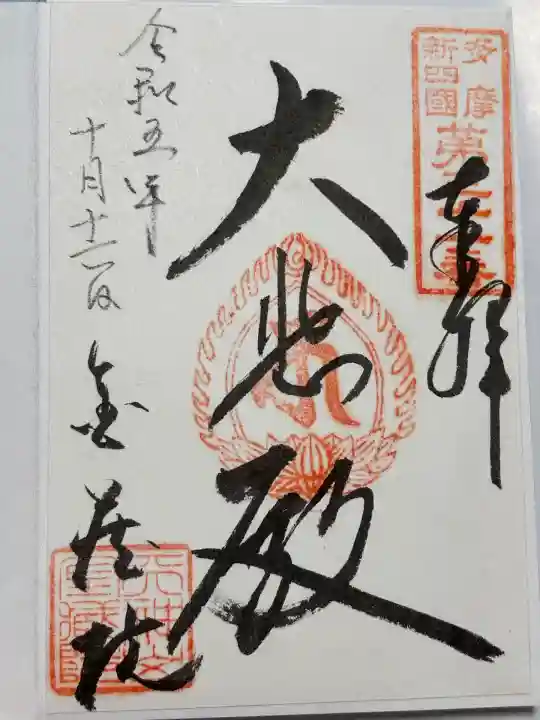 多摩
新四國
奉拝
大悲殿
令和五年
十月
金蔵院